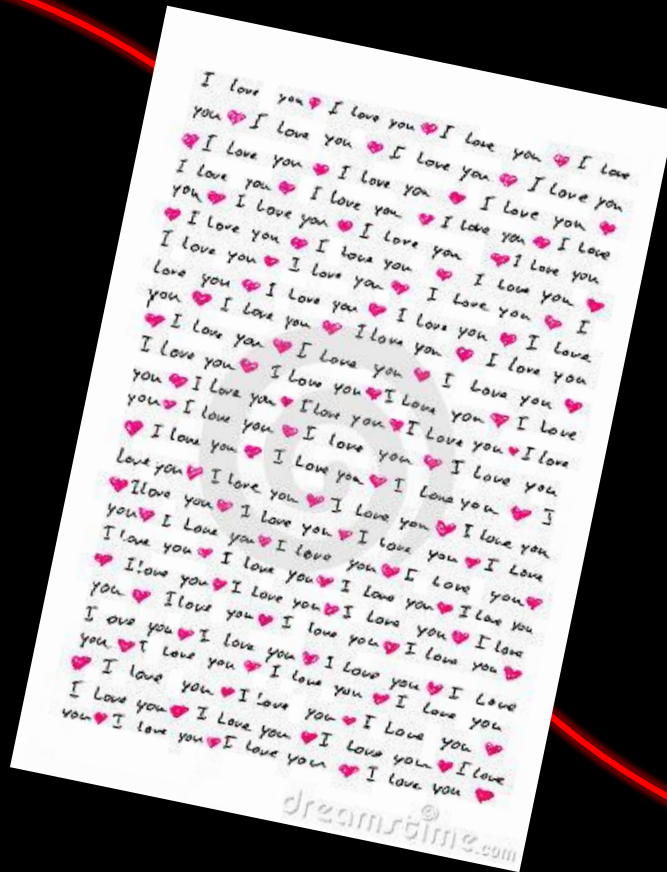 I love you ♥ I love you ♥ I love you ♥ I love
you ♥ I love you ♥ I love you ♥ I love you
♥ I love you ♥ I love you ♥ I love you ♥
I love you ♥ I love you ♥ I love you ♥ I love
you ♥ I love you ♥ I love you ♥ I love you
♥ I love you ♥ I love you ♥ I love you ♥
I love you ♥ I love you ♥ I love you ♥ I
love you ♥ I love you ♥ I love you ♥ I love
you ♥ I love you ♥ I love you ♥ I love you
♥ I love you ♥ I love you ♥ I love you ♥
I love you ♥ I love you ♥ I love you ♥ I love
you ♥ I love you ♥ I love you ♥ I love you ♥ I love
you ♥ I love you ♥ I love you ♥ I love you
♥ I love you ♥ I love you ♥ I love you ♥ I
love you ♥ I love you ♥ I love you ♥ I love you
♥ I love you ♥ I love you ♥ I love you ♥ I love
you ♥ I love you ♥ I love you ♥ I love you ♥
I love you ♥ I love you ♥ I love you ♥ I love you
♥ I love you ♥ I love you ♥ I love you ♥ I love
you ♥ I love you ♥ I love you ♥ I love you ♥
I ove you ♥ I love you ♥ I love you ♥ I love
you ♥ I love you ♥ I love you ♥ I love you
♥ I love you ♥ I love you ♥ I love you ♥
I love you ♥ I love you ♥ I love you ♥ I love
you ♥ I love you ♥ I love you ♥ I love you ♥
dreamstime.com